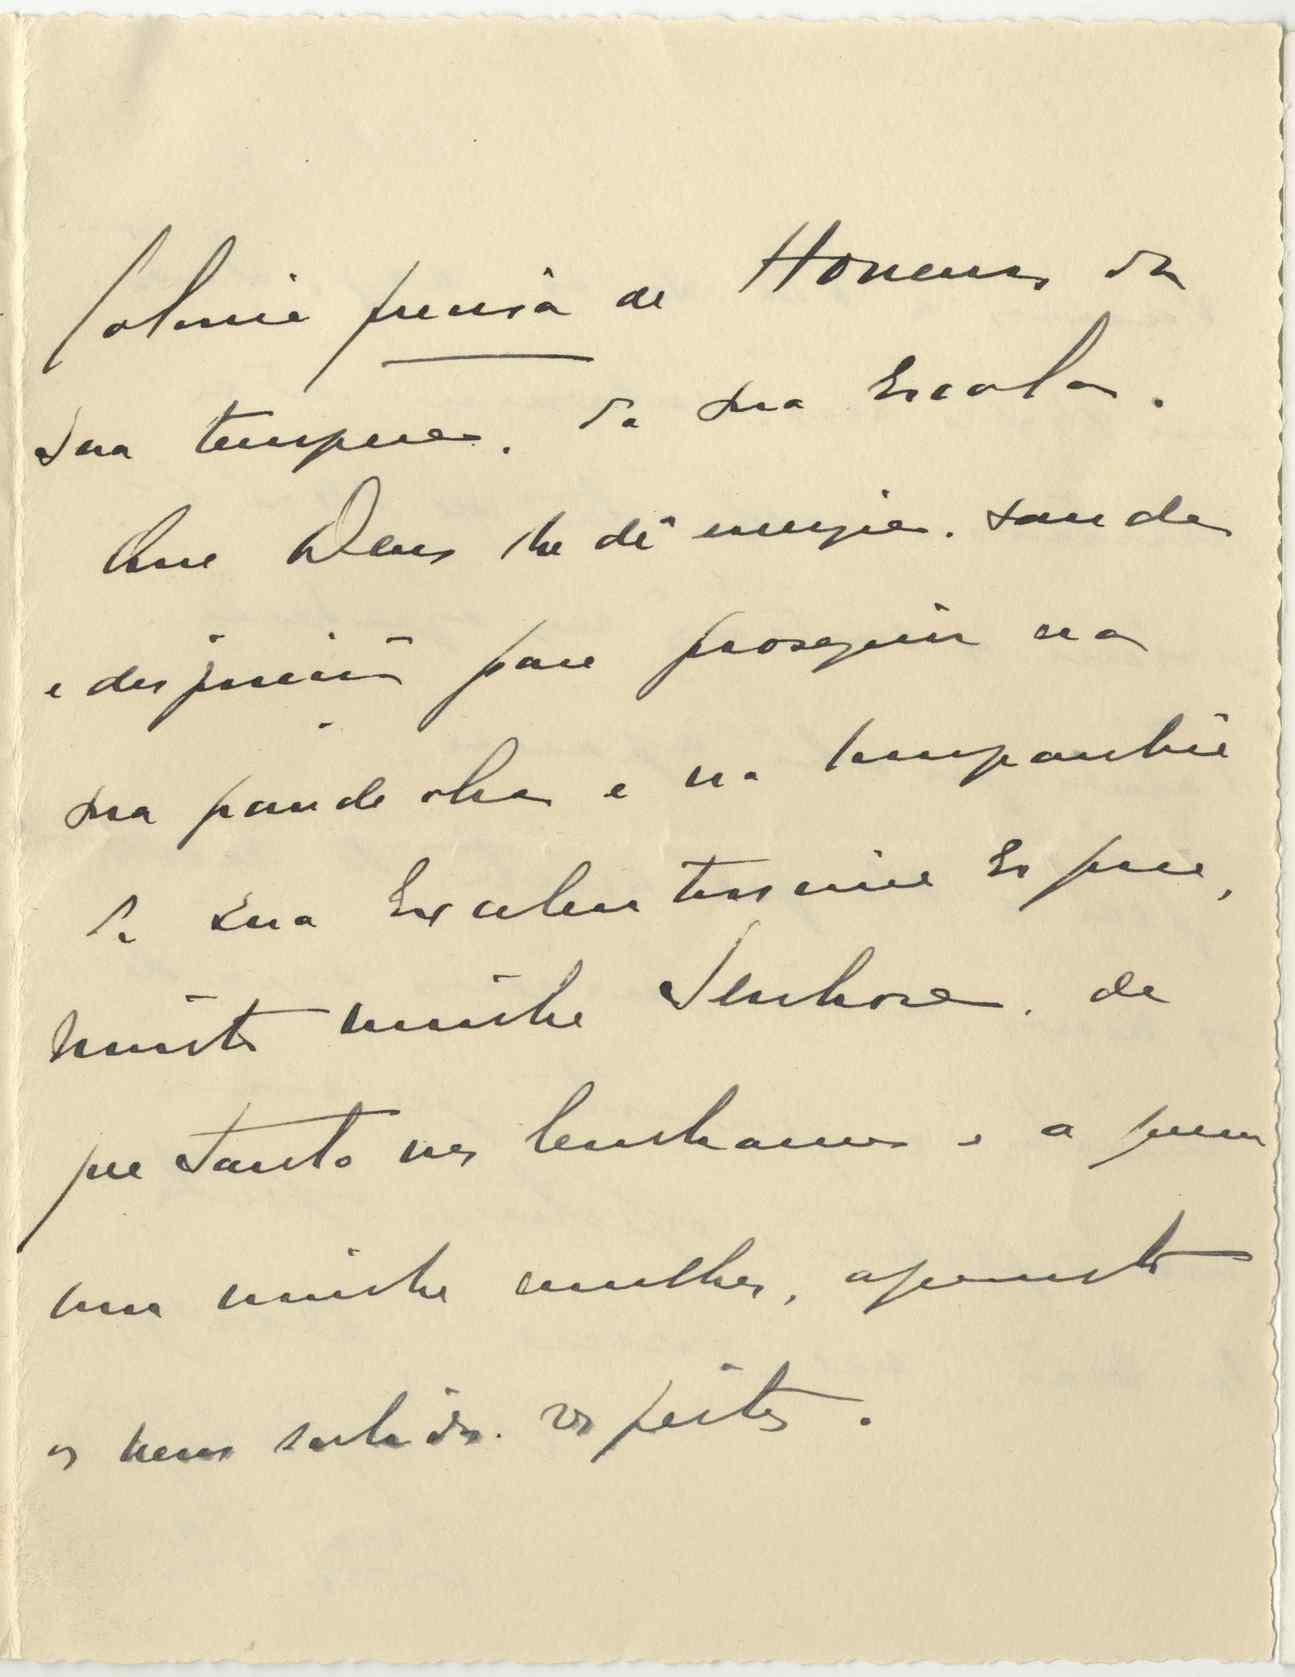 Colonia precisa de Homens da
sua tempera, da sua Escola.
Que Deus lhe dê energia, saude
e disposição para proseguir na
sua grande obra e na companhia
da sua Excelentissima Esposa,
muito minha Senhora, de
que tanto nos lembramos e a quem
com minha mulher, apresento
os meus subidos respeitos.